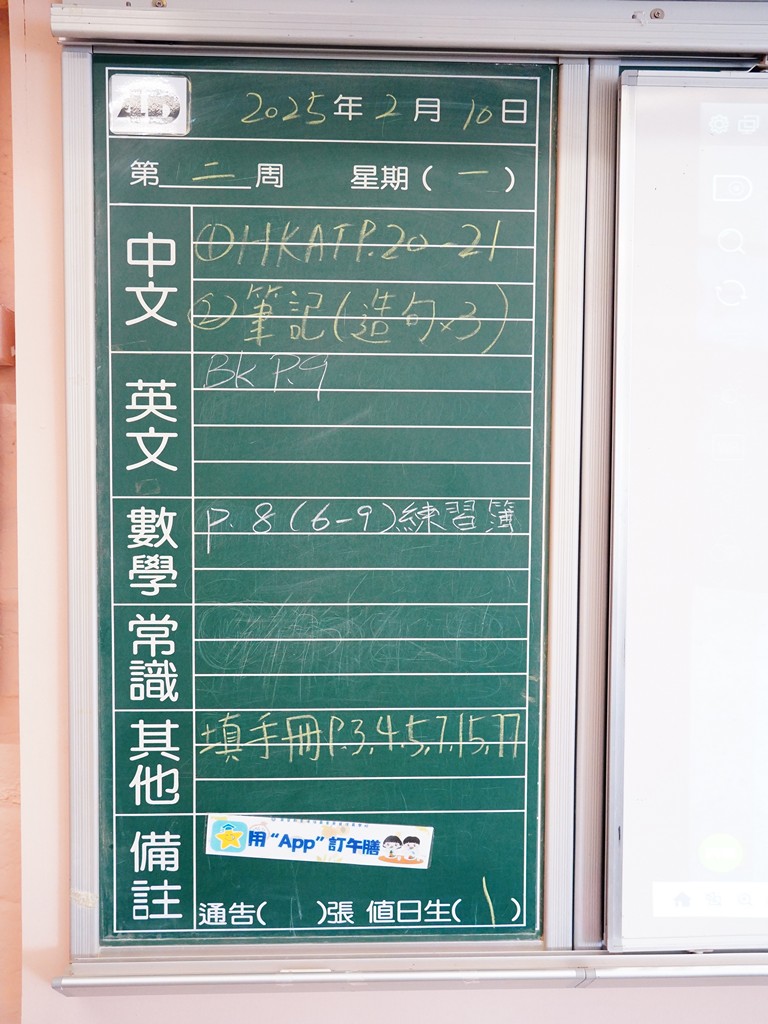 2025年2月10日
第二周 星期(一)
中文
①HKAT P.20-21
②筆記(造句x3)
英文
BK P.9
數學
p. 8 (6-9)練習簿
常識
其他
填手冊P.3,4,5,7,15,17
備註
用“App”訂午膳
通告( )張 值日生(1)